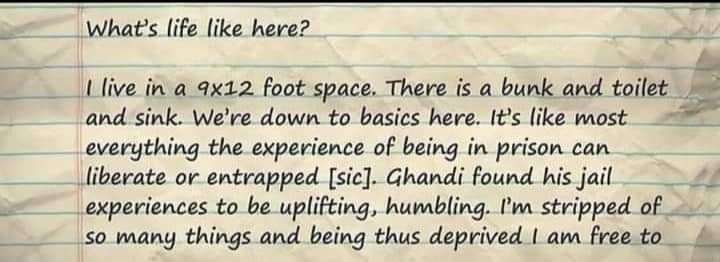 What's life like here?
I live in a 9x12 foot space. There is a bunk and toilet
and sink. We're down to basics here. It's like most
everything the experience of being in prison can
liberate or entrapped [sic]. Ghandi found his jail
experiences to be uplifting, humbling. I'm stripped of
so many things and being thus deprived I am free to